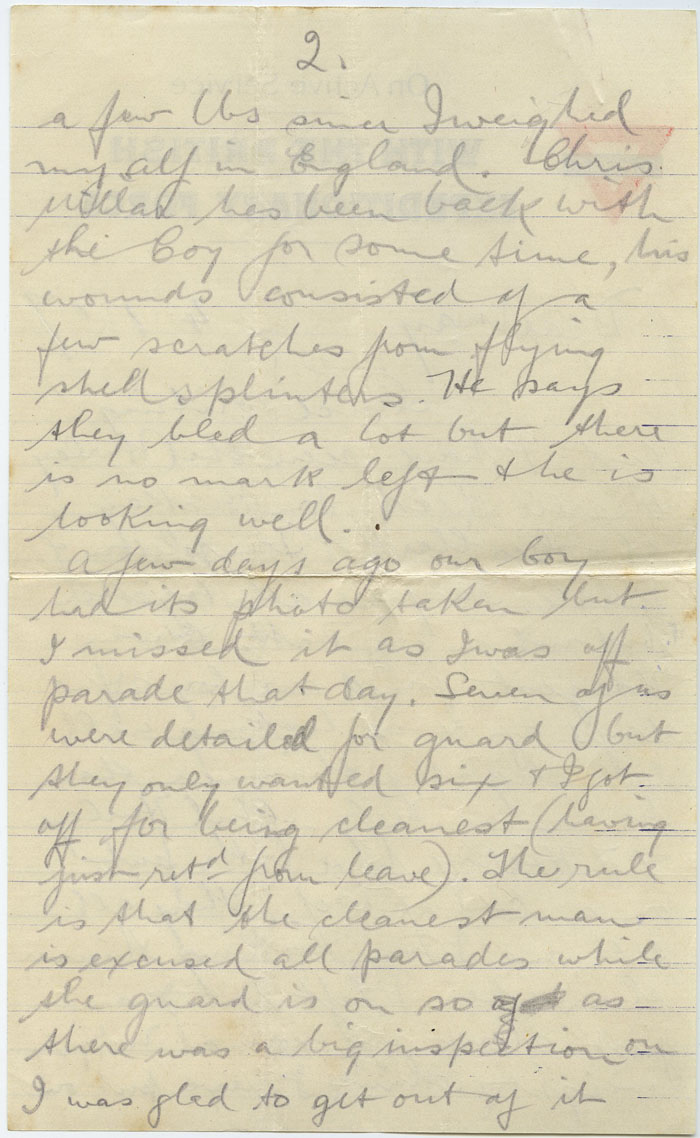 2.
a few lbs since I weighed
myself in England. Chris
Millar has been back with
the Coy for some time, his
wounds consisted of a
few scratches from flying
shell splinters. He says
they bled a lot but there
is no mark left & he is
looking well.
A few days ago our Coy
had its photo taken but
I missed it as I was off
parade that day. Seven of us
were detailed for guard but
they only wanted six & I got
off for being cleanest (having
just retd from leave). The rule
is that the cleanest man
is excused all parades while
the guard is on so as
there was a big inspection on
I was glad to get out of it
On Active Service
WITH THE BRITISH